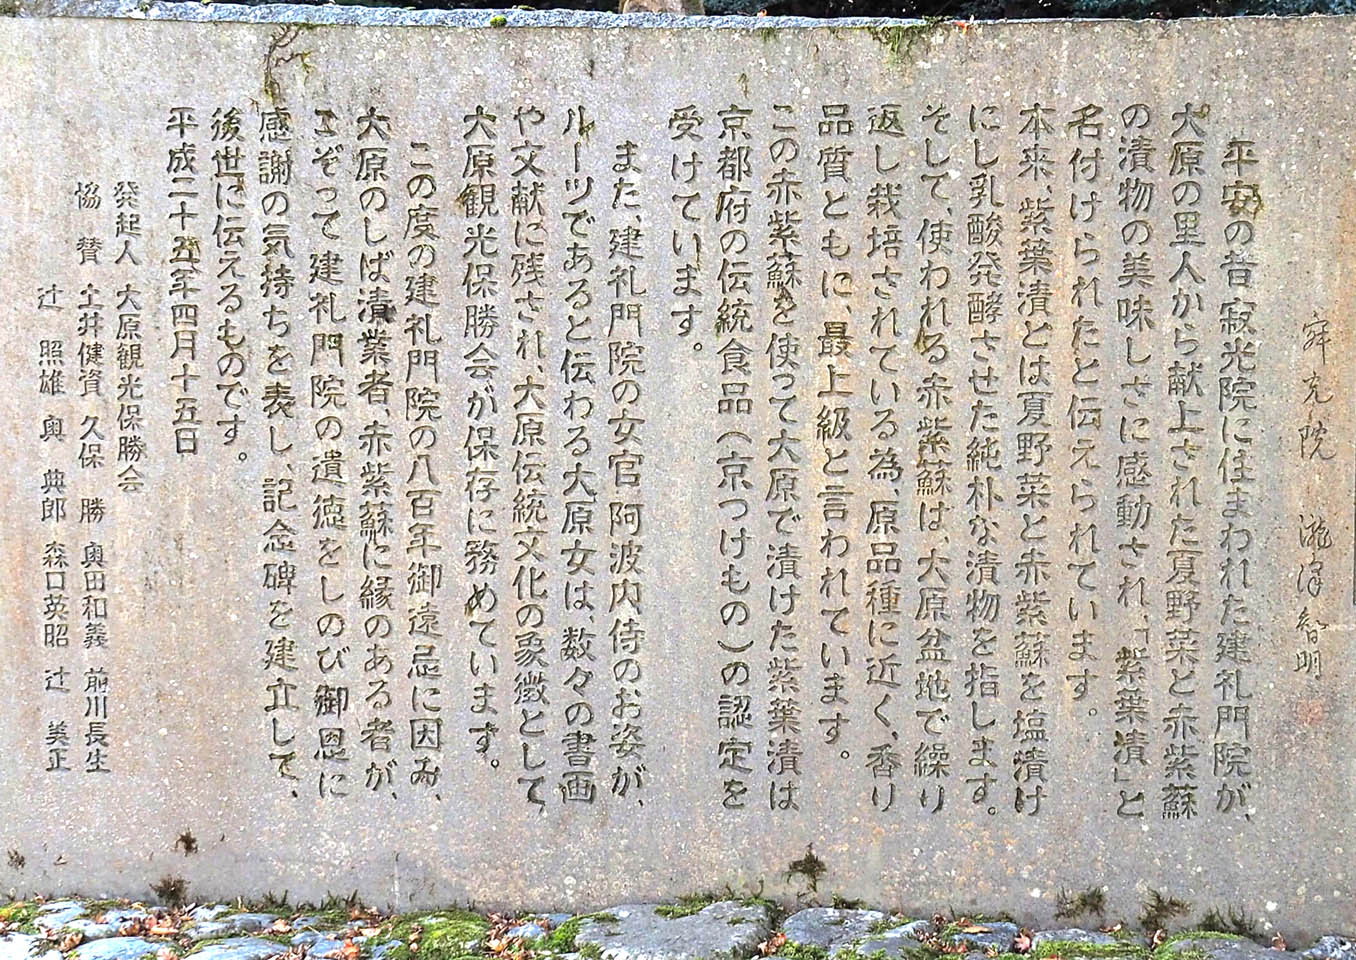 寂光院 瀧澤智明
平安の昔寂光院に住まわれた建礼門院が、
大原の里人から献上された夏野菜と赤紫蘇
の漬物の美味しさに感動され、「紫葉漬」と
名付けられたと伝えられています。
本来、紫葉漬とは夏野菜と赤紫蘇を塩漬け
にし乳酸発酵させた純朴な漬物を指します。
そして、使われる赤紫蘇は、大原盆地で繰り
返し栽培されている為、原品種に近く、香り
品質ともに、最上級と言われています。
この赤紫蘇を使って大原で漬けた紫葉漬は
京都府の伝統食品（京つけもの）の認定を
受けています。
また、建礼門院の女官阿波内侍のお姿が、
ルーツであると伝わる大原女は、数々の書画
や文献に残され、大原伝統文化の象徴として、
大原観光保勝会が保存に務めています。
この度の建礼門院の八百年御遠忌に因み、
大原のしば漬業者、赤紫蘇に縁のある者が、
こぞって建礼門院の遺徳をしのび御恩に
感謝の気持ちを表し、記念碑を建立して、
後世に伝えるものです。
平成二十五年四月十五日
発起人 大原観光保勝会
協賛 土井健資 久保勝 奥田和義 前川長生
辻照雄 奥典郎 森口英昭 辻美正